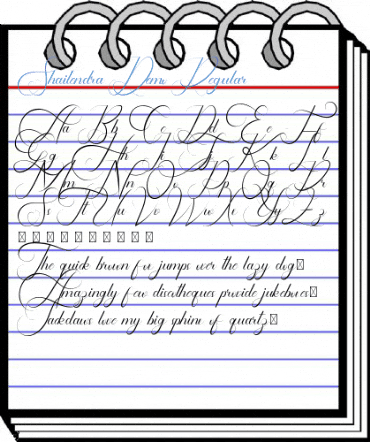 Shailendra Demo Regular
Aa Bb Cc Dd Ee Ff
Gg Hh Ii Jj Kk Ll
Mm Nn Oo Pp Qq Rr
Ss Tt Uu Vv Ww Xx Yy Zz
The quick brown fox jumps over the lazy dog
Amazingly few discotheques provide jukeboxes
Jackdaws love my big sphinx of quartz